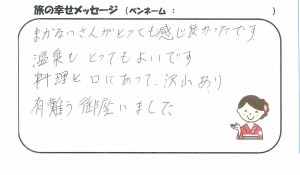 旅の幸せメッセージ（ペンネーム： ）
まかないさんがとっても感じ良かったです
温泉もとってもよいです
料理と口にあって、沢山あり
有難う御座いました